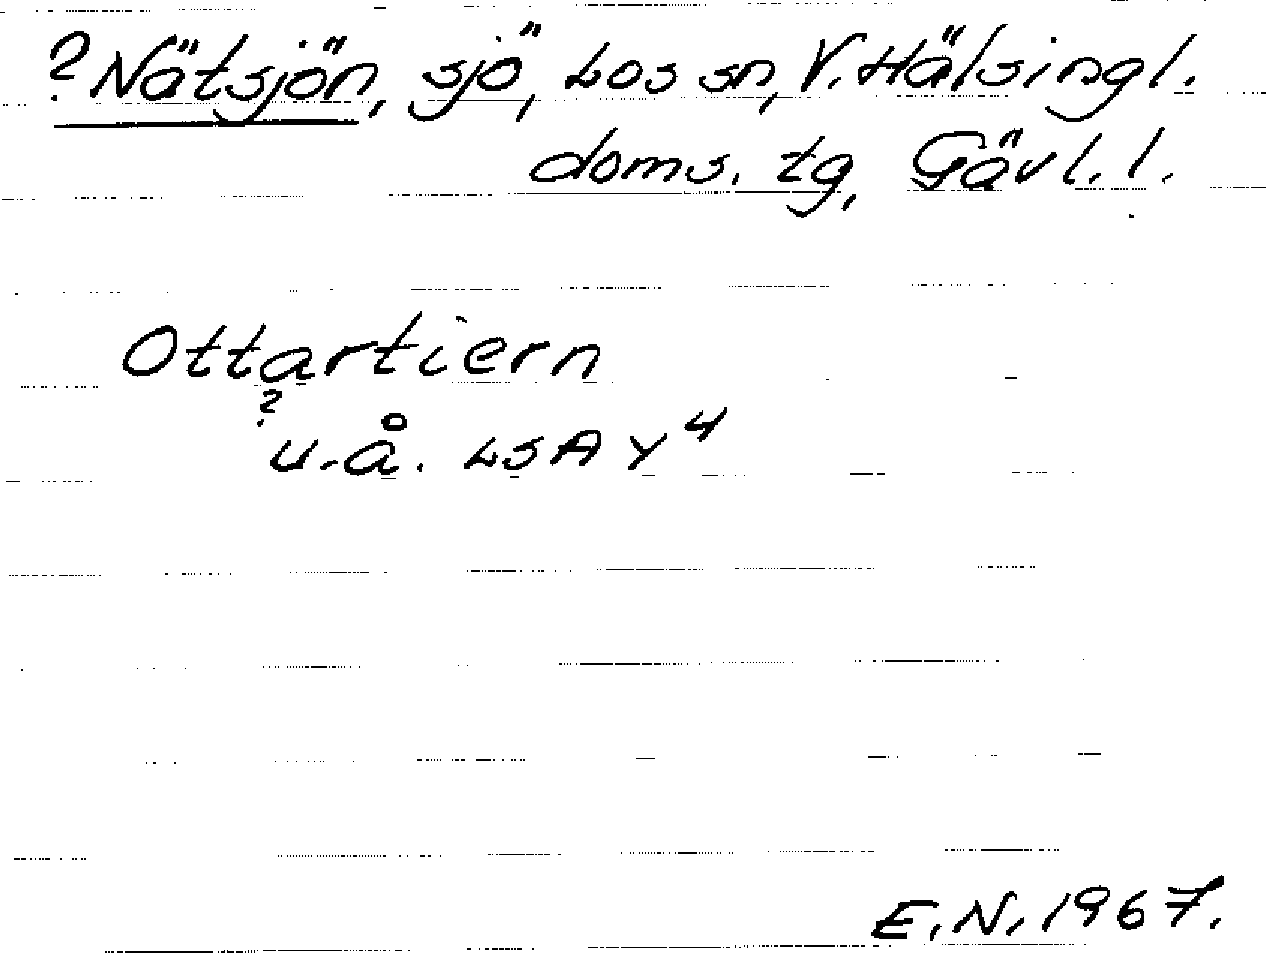 ?Nätsjön, sjö, Los sn, V. Hälsingl.
doms. tg, Gävl. l.
Ottartiern
?
u. å. LSA Y4
E. N. 1967.